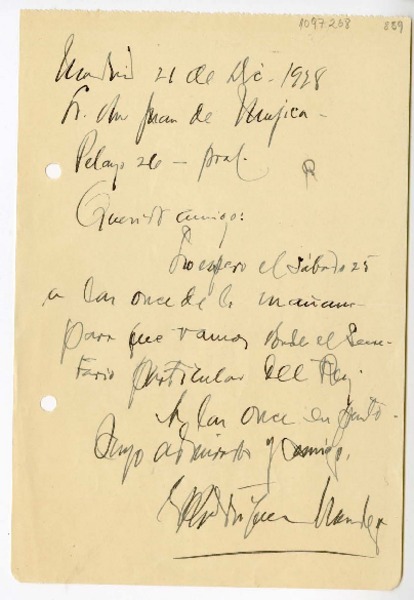 1097208 889
Madrid 21 de Dic. 1928
Sr. Don Juan de Mujica -
Pelayo 26 - pral.
R
Querido amigo:
Lo espero el Sábado 25
a las once de la mañana
para que vamos donde el Secre
tario particular del Rey.
A las once en punto.
Suyo admirador y amigo,
E Rodríguez Mendoza